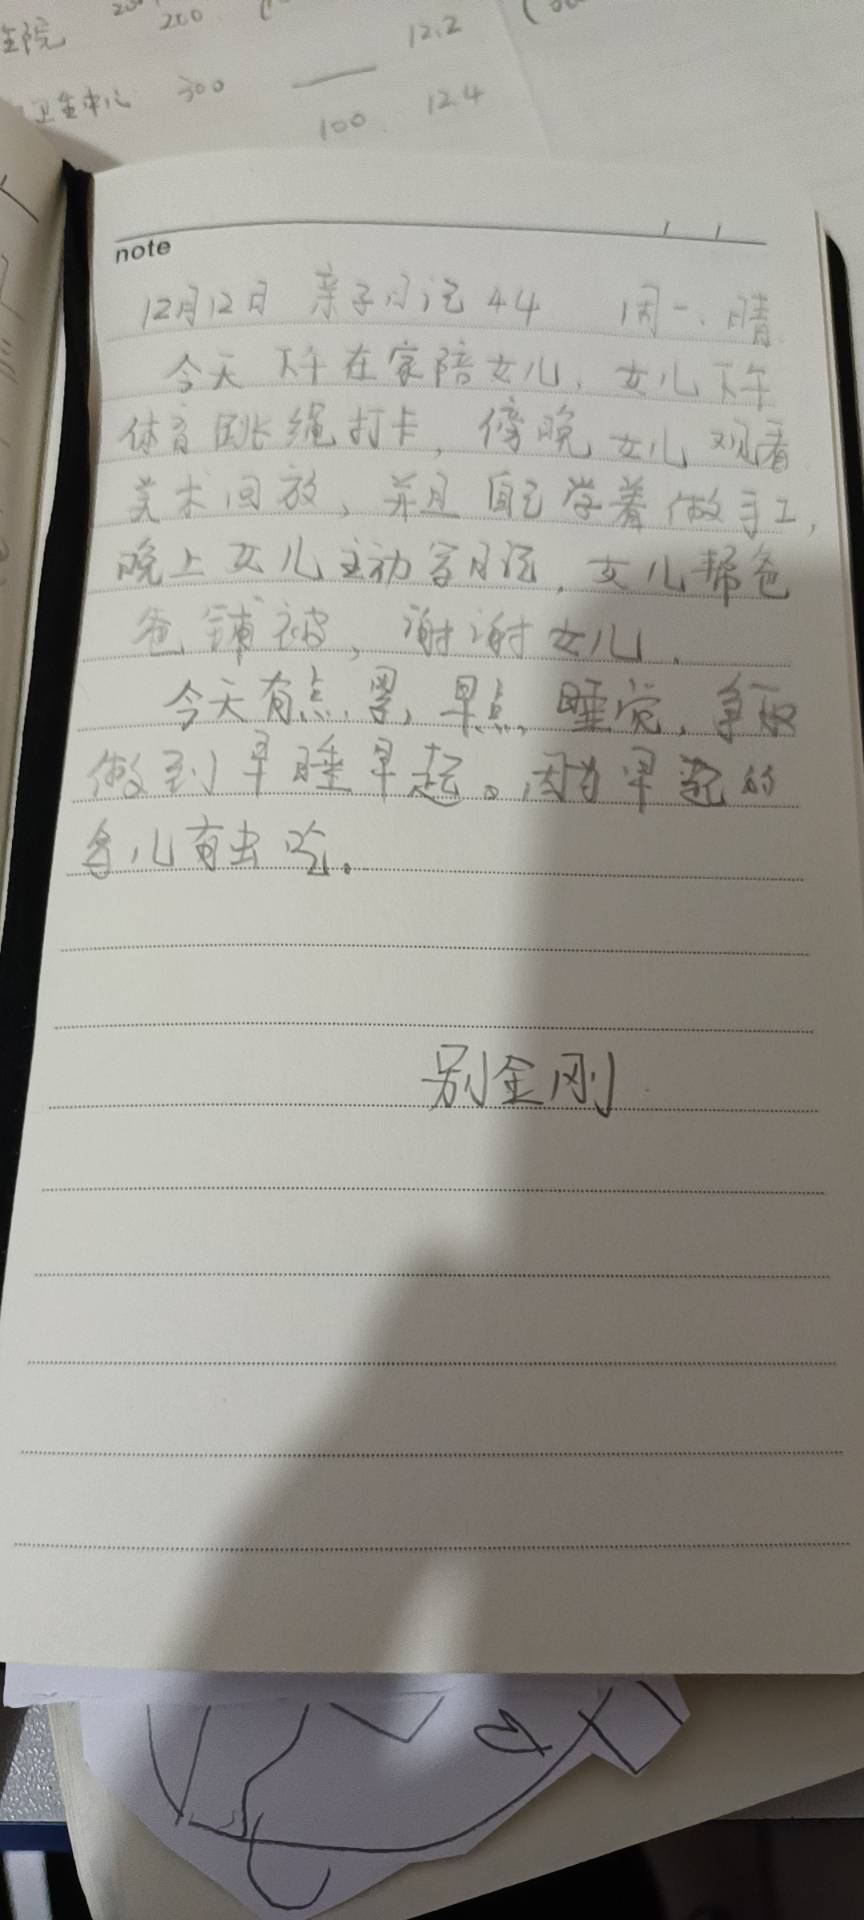 200
200
12.2
卫生中心 300
100 12.4
note
12月12日 亲子日记 44 周一、晴
今天下午在家陪女儿，女儿下午
体育跳绳打卡，傍晚女儿观看
美术回放，并且自己学着做手工，
晚上女儿主动写日记，女儿帮爸
爸铺被，谢谢女儿。
今天有点累，早点睡觉，争取
做到早睡早起。因为早起的
鸟儿有虫吃。
别金刚